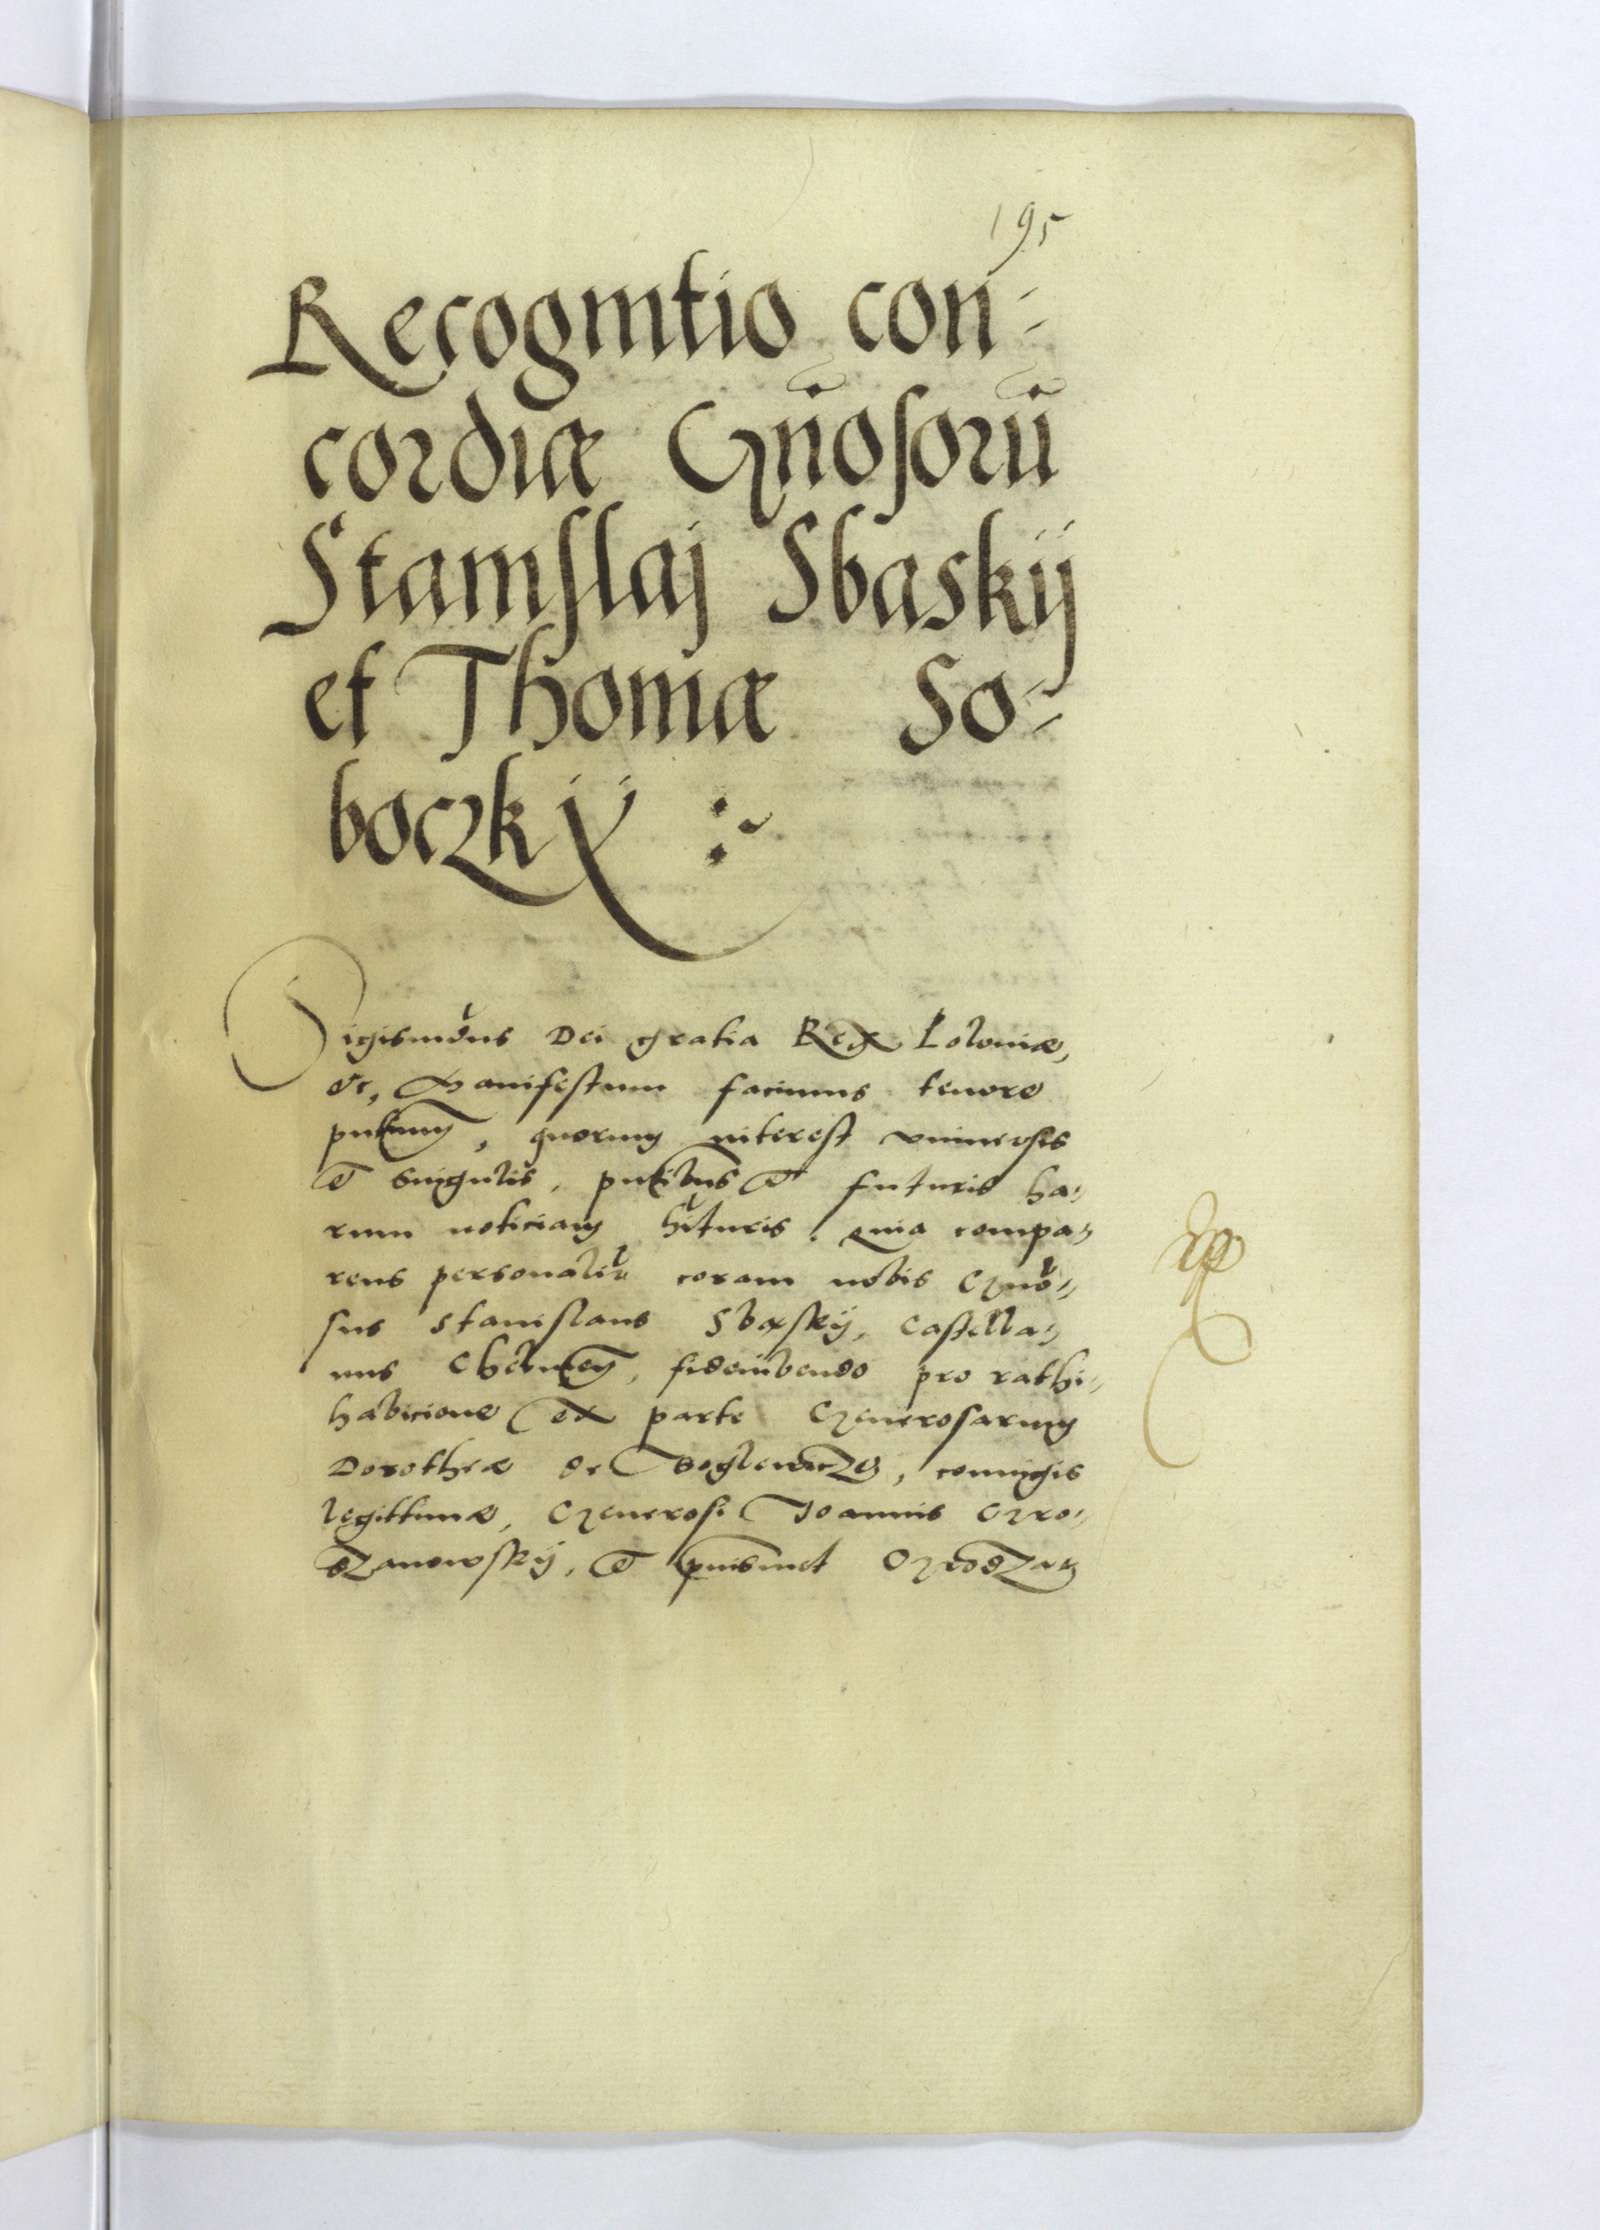 195
Recognitio con-
cordiæ Gn̄osorū
Stanislaj Sbaskij
et Thomæ So-
boczkij :~
Sigismūdus Dei gratia Rex Poloniæ,
etc, Manifestum facimus tenore
pn̄tium, quorum interest vniuersis
et singulis, pn̄tibus et futuris ha-
rum noticiam hituris. Quia compa-
rens personalitr coram nobis Gn̄o-
sus Stanislaus Sbąskij, Castella-
nus Chelmen, fideiubendo pro rathi-
habicione ex parte Generosarum
Dorotheæ de, coniugis
legittimæ, Generosi Joannis Gro-
dzanowskij, et